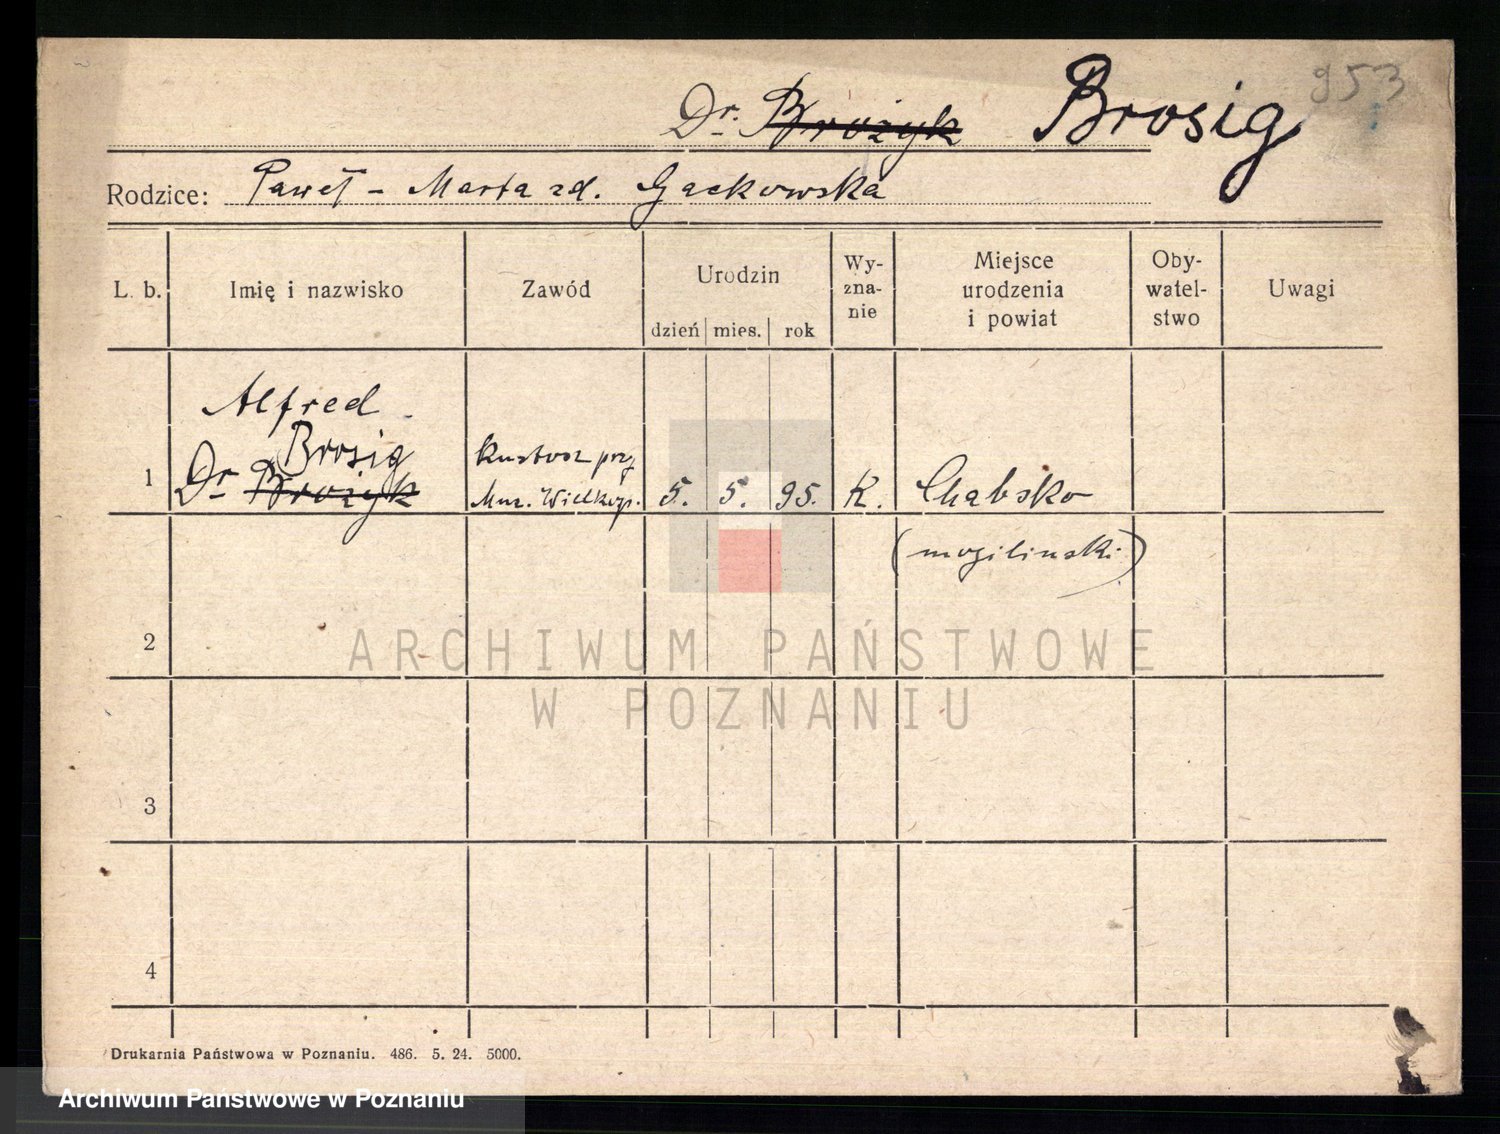 953
Dr. Brożyk Brosig
Rodzice: Paweł – Marta zd. Gackowska
L. b. Imię i nazwisko Zawód Urodzin dzień mies. rok Wy-zna-nie Miejsce urodzenia i powiat Oby-watel-stwo Uwagi
Alfred
Brosig
1 Dr Brożyk Kustosz przy Muz. Wielkop. 5. 5. 95. K. Chabsko
(mogilinski)
2
ARCHIWUM PAŃSTWOWE
W POZNANIU
3
4
Drukarnia Państwowa w Poznaniu. 486. 5. 24. 5000.
Archiwum Państwowe w Poznaniu